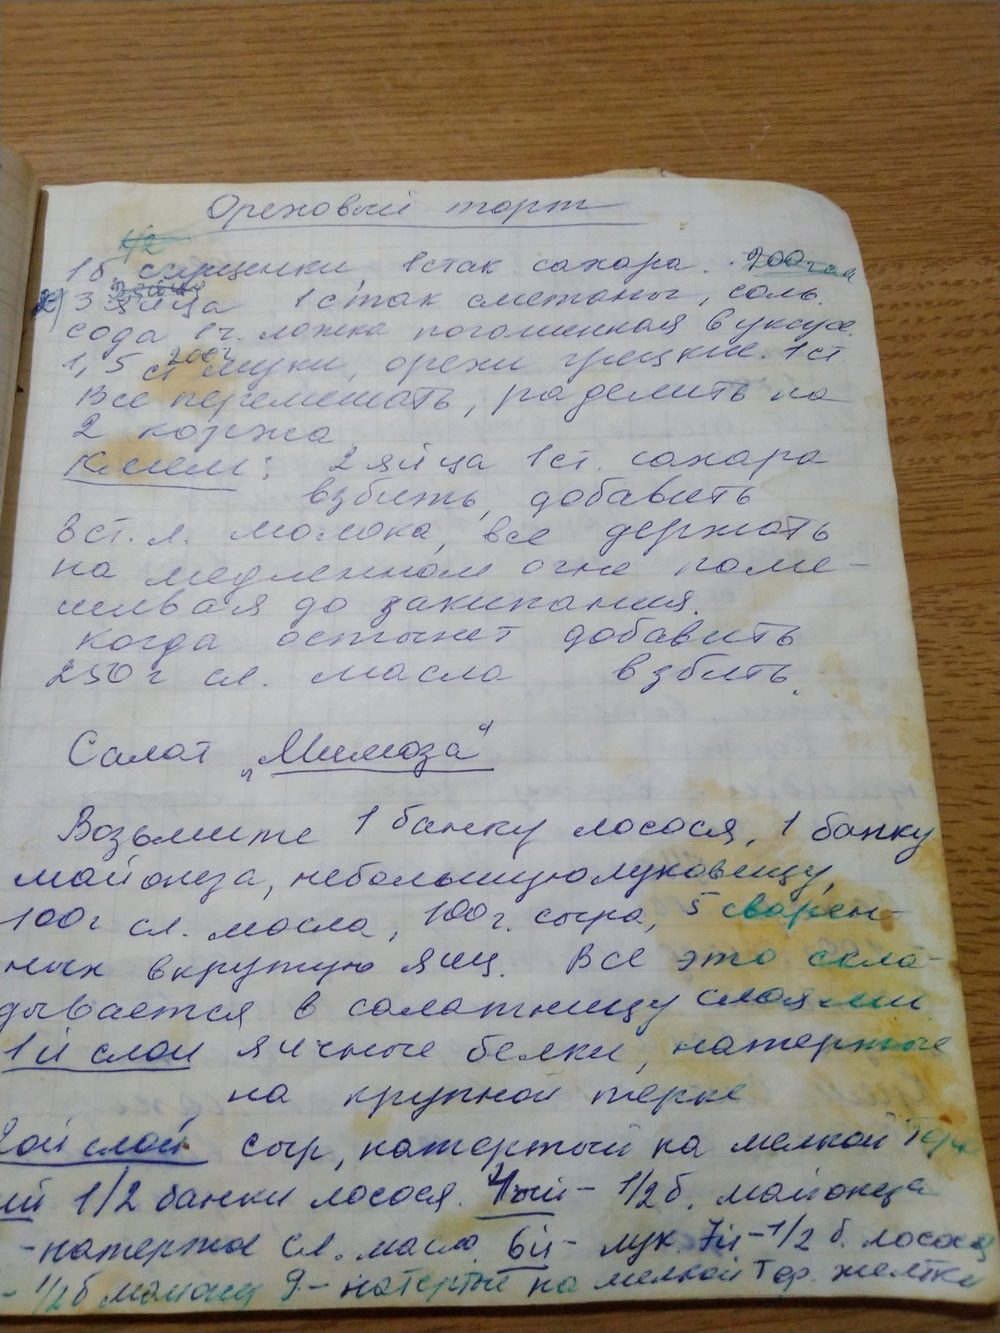 Ореховый торт
1/2
1б. сгущенки 1 стак сахара. 200 гол
3 яйца 1 стак сметаны, соль.
сода 1 ч. ложка погошенная в уксусе.
200г
1,5 ст муки, орехи грецкие. 1 ст
Все перемешать, раделить на
2 коржа
Клем: 2 яйца 1 ст. сахара
взбить, добавить
3 ст. л. молока, все держать
на медленном огне поме-
шивая до закипания.
когда остынет добавить
250 г сл. масла взбить.
Салат „Мимоза“
Возьмите 1 банку лосося, 1 банку
майонеза, небольшую луковицу,
100г сл. масла, 100г. сыра, 5 сварен-
ных вкрутую яиц. Всё это скла-
дывается в салатницу слоями
1й слой яичные белки, натертые
на крупной терке
2ой слой сыр, натертый на мелкой Терк
ий 1/2 банки лосося. 4ый - 1/2 б. майонеза
- натертое сл. масло 6й - лук. 7й - 1/2 б. лосося
- 1/2 б майонез 9 - натертые на мелкой Тер. желтки